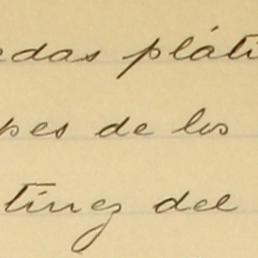 edas pláti
pes de los
tínez del